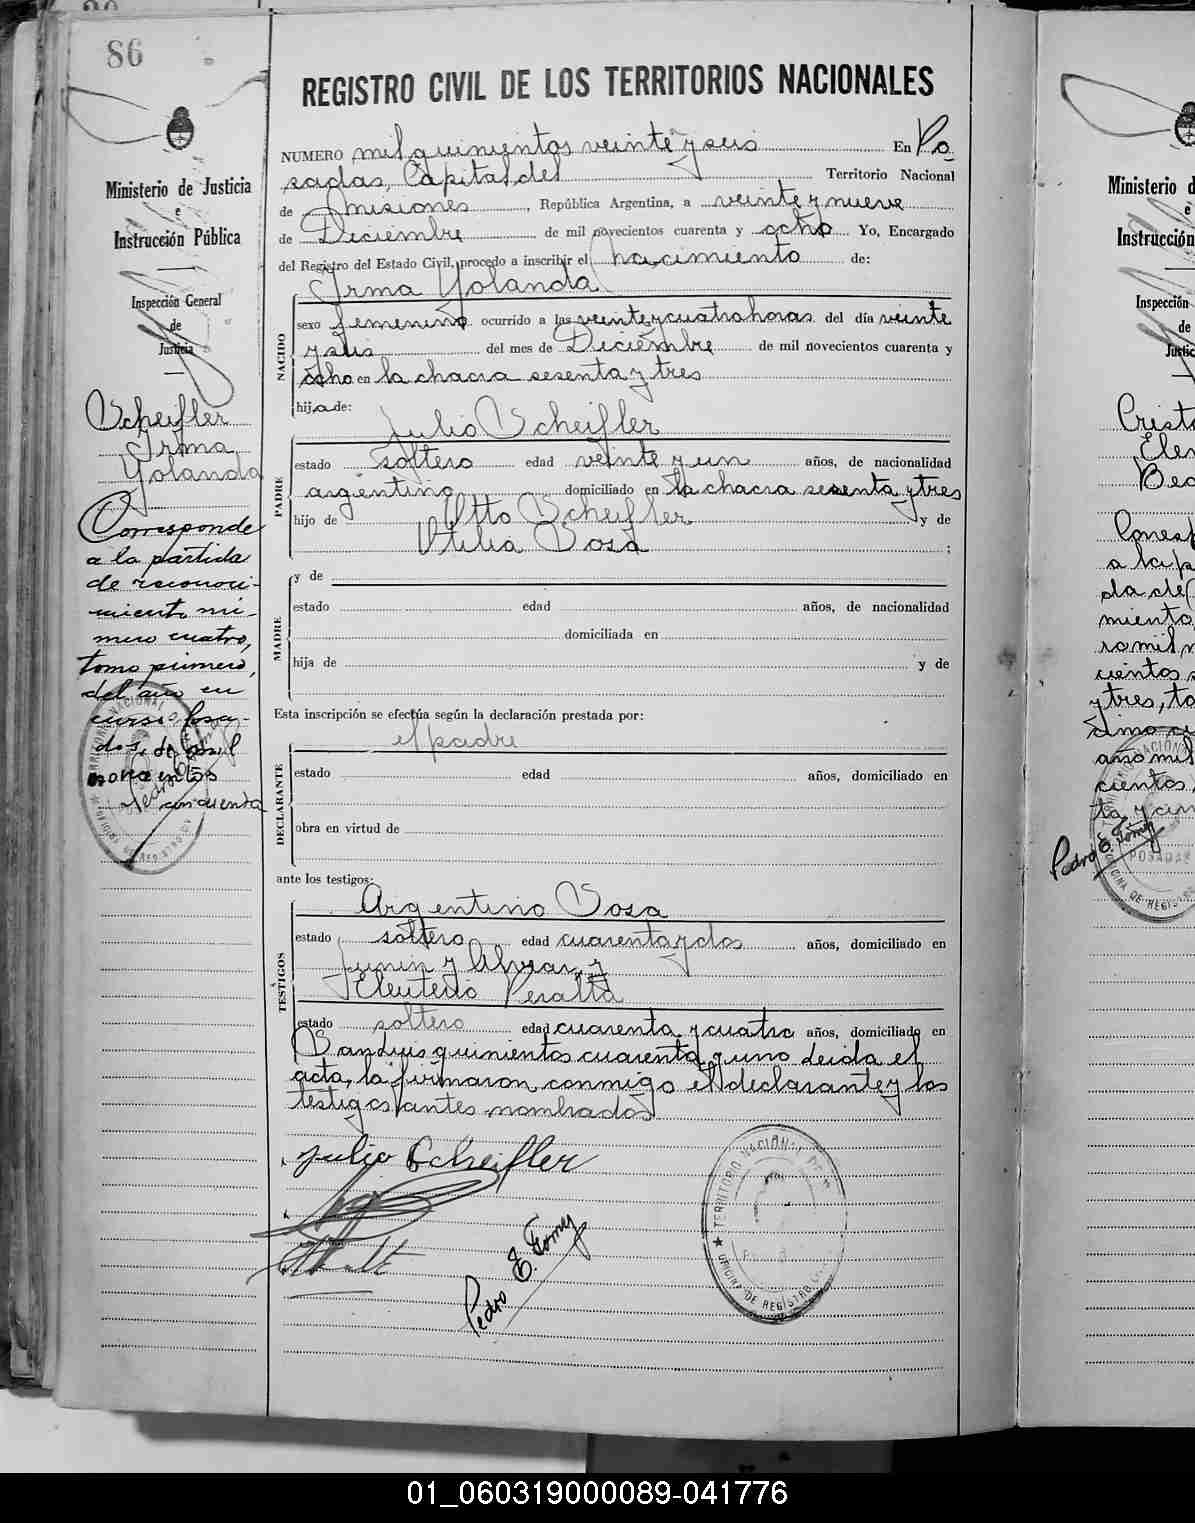 86
Ministerio de Justicia
e
Instrucción Pública
Inspección General
de
Justicia
Scheifler
Irma
Yolanda
Corresponde
a la partida
de reconoci-
miento nú-
mero cuatro,
tomo primero,
del año en
curso. Posa-
das, de
novecientos
cincuenta
Pedro E.
REGISTRO CIVIL DE LOS TERRITORIOS NACIONALES
NUMERO mil quinientos veinte y seis En Po
sadas, Capital del Territorio Nacional
de Misiones, República Argentina, a veinte y nueve
de Diciembre de mil novecientos cuarenta y ocho Yo, Encargado
del Registro del Estado Civil, procedo a inscribir el nacimiento de:
Irma Yolanda
NACIDO
sexo femenino ocurrido a las veinte y cuatro horas del día veinte
y seis del mes de Diciembre de mil novecientos cuarenta y
ocho en la chacra sesenta y tres
hija de:
Julio Scheifler
PADRE
estado soltero edad veinte y un años, de nacionalidad
argentino domiciliado en la chacra sesenta y tres
hijo de Otto Scheifler y de
Otilia Sosa ;
MADRE
y de
estado edad años, de nacionalidad
domiciliada en
hija de y de
Esta inscripción se efectúa según la declaración prestada por:
el padre
DECLARANTE
estado edad años, domiciliado en
obra en virtud de
ante los testigos:
TESTIGOS
Argentino Sosa
estado soltero edad cuarenta y dos años, domiciliado en
Junin y Alvear, y
Eleuterio Peralta
estado soltero edad cuarenta y cuatro años, domiciliado en
San Luis quinientos cuarenta y uno leida el
acta, la firmaron conmigo el declarante y los
testigos antes nombrados
Julio Scheifler
Pedro E. Fomy
TERRITORIO NACIONAL DE
OFICINA DE REGISTRO
Ministerio d
e
Instrucción
Inspección
de
Justic
Crist
Ele
Be
Corresp
a la p
da de
miento
ro mil n
cientos s
y tres, to
año mil
cientos
ta y cin
Pedro E. Fomy
POSADAS
OFICINA DE REGIS
01_060319000089-041776